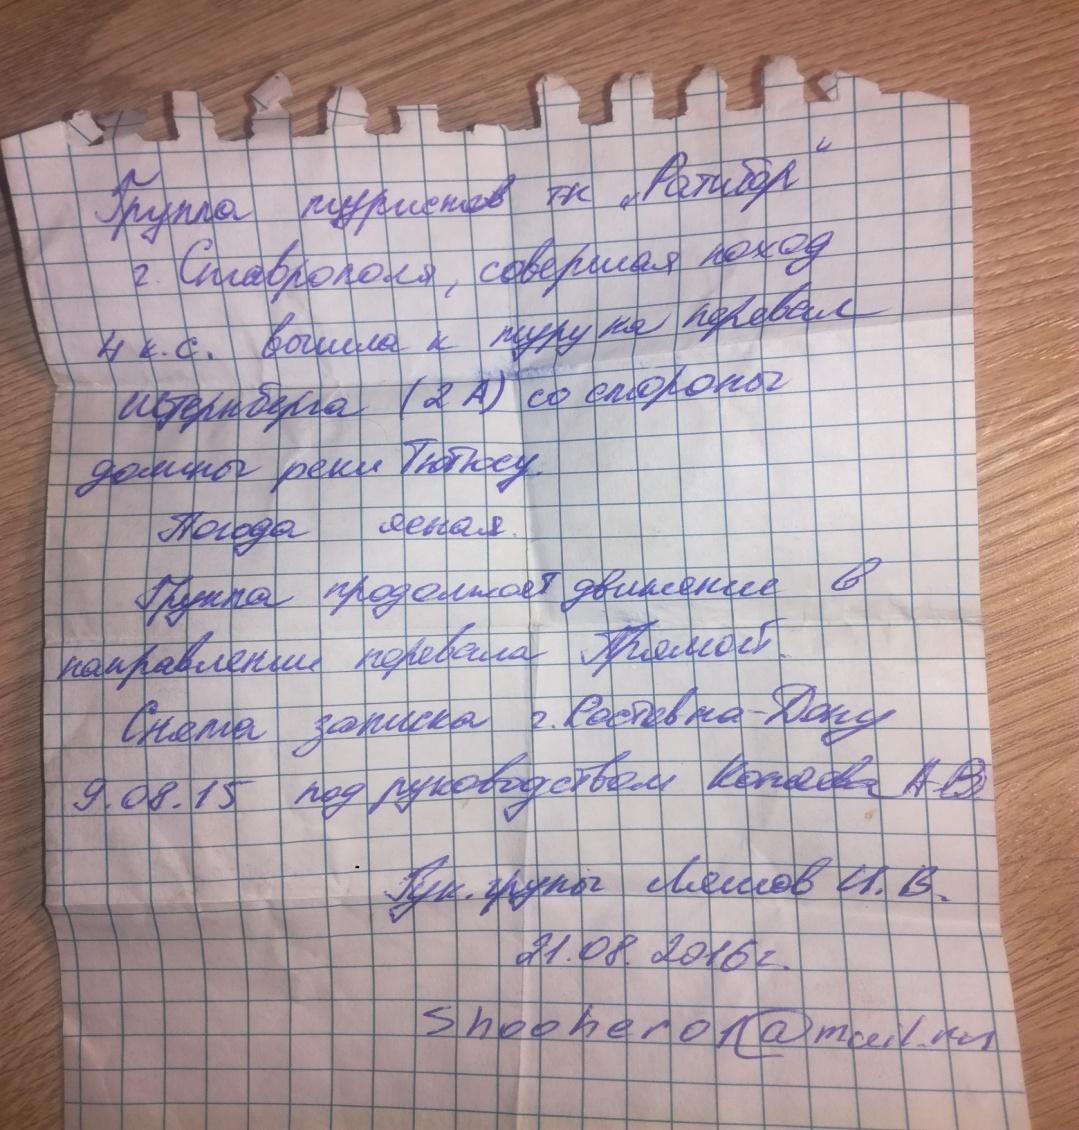 Группа туристов тк „Ратибор"
г. Ставрополя, совершая поход
4 к.с. вышла к туру на перевал
Штернберга (2А) со стороны
долины реки Тютюсу.
Погода ясная.
Группа продолжает движение в
направлении перевала Прямой.
Снята записка г. Ростов на-Дону
9.08.15 под руководством А.В.
Рук. групы Ляшов И.В.
21.08.2016г.
shoohero1@mail.ru